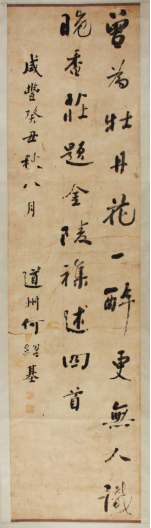 曾為牡丹花一醉更無人識
晚香莊題金陵襍述四首
咸豐癸丑秋八月
道州何紹基